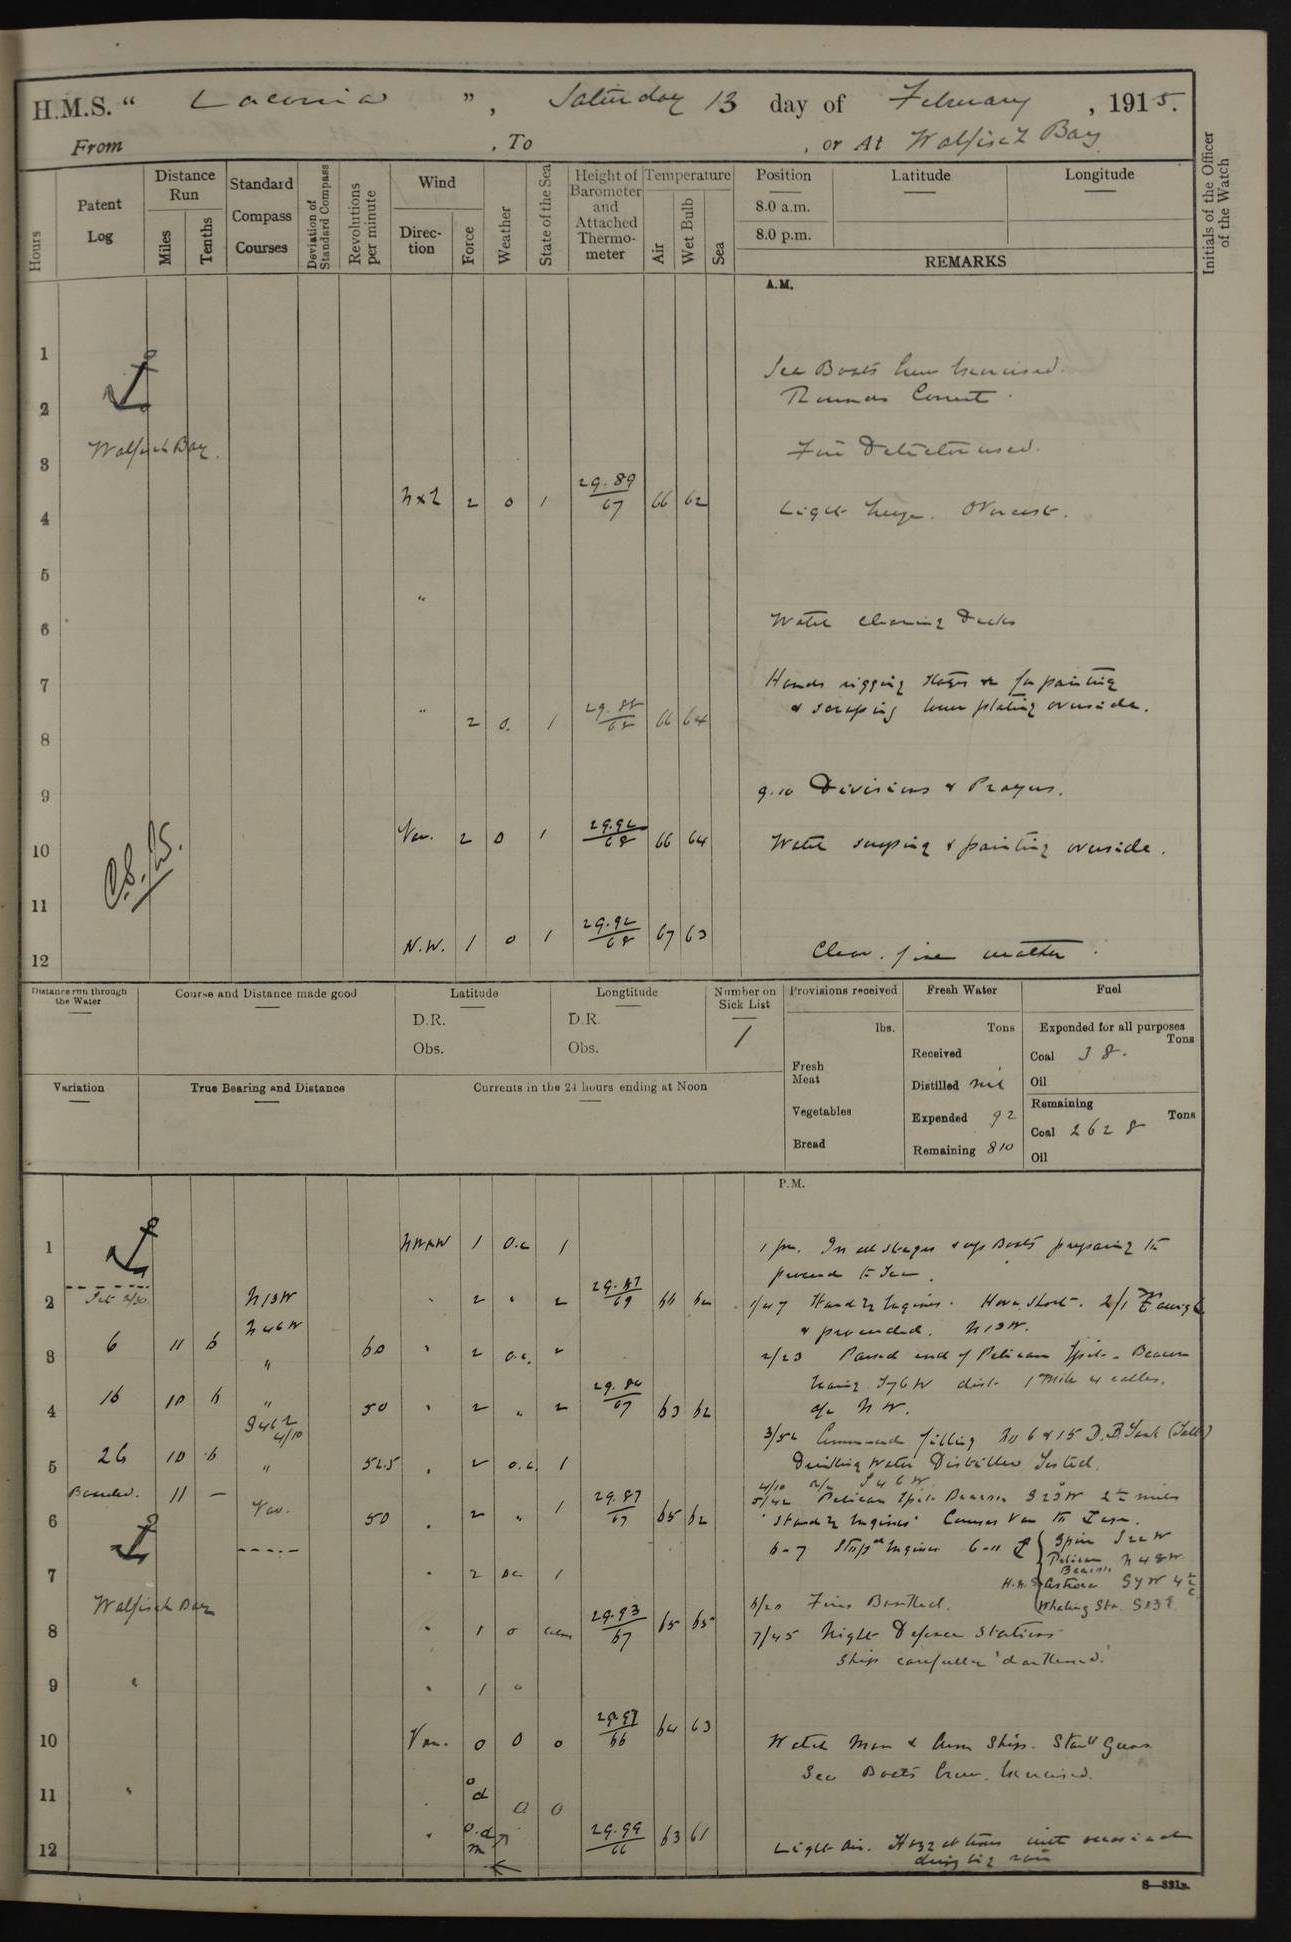 H.M.S. “ Laconia ”, Saturday 13 day of February, 1915.
From , To , or At Walfisch Bay
Hours
Patent Log
Distance Run
Miles
Tenths
Standard Compass Courses
Deviation of Standard Compass
Revolutions per minute
Wind
Direction
Force
Weather
State of the Sea
Height of Barometer and Attached Thermometer
Temperature
Air
Wet Bulb
Sea
Position
Latitude
Longitude
8.0 a.m.
8.0 p.m.
REMARKS
Initials of the Officer of the Watch
A.M.
1
Sea Boats Crew Exercised.
Rounds Correct.
2
Walfisch Bay.
Fire Detector used.
3
4 2 0 1 29.89/67 66 62 Light Airs. Overcast.
5
"
6 Watch cleaning Decks
7 Hands rigging stages & for painting
& scraping lower plating overside.
8 " 2 0. 1 29.88/68 66 64
9 9.10 Divisions & Prayers.
10 Var. 2 0 1 29.92/68 66 64 Watch scraping & painting overside.
11
12 N.W. 1 0 1 29.92/68 67 63 Clear. fine weather.
Distance run through the Water
Course and Distance made good
Latitude
D.R.
Obs.
Longtitude
D.R.
Obs.
Number on Sick List
1
Provisions received
lbs.
Fresh Meat
Vegetables
Bread
Fresh Water
Tons
Received
Distilled nil
Expended 92
Remaining 810
Fuel
Expended for all purposes
Tons
Coal 38.
Oil
Remaining
Tons
Coal 2628
Oil
Variation
True Bearing and Distance
Currents in the 24 hours ending at Noon
P.M.
1 NWxW 1 o.c 1 1 pm. In all stages & up Boats preparing to
proceed to Sea.
2 N13W 2 " 2 29.87/69 1/47 Standby Engines. Hove Short. 2/1
& proceeded. N13W.
N46W
3 6 11 6 " 60 " 2 o.c. 2 2/23 Passed end of Pelican Spit. Beacon
bearing S76W dist. 1 mile 4 cables.
a/c NW.
4 16 10 " 50 " 2 " 2 29.86/67 63 62
S46E 4/10
3/52 Commenced filling No 6 & 15 D.B. Tank
Drinking Water Distiller Tested.
5 26 10 " 52.5 " 2 o.c. 1
4/10 a/c S46W
Banked. 11 – Var.
5/42 Pelican Spit Beacon S23W 2½ miles
6 50 " 2 " 1 29.87/67 65 62 'Standby Engines' Courses Var to
6-7 Stop'd Engines 6-11 Spire
Pelican Beacon N48W
7 " 2 oc 1 H.M.S. Astraea S4W
Walfisch Bay
6/20 Fires Banked. Whaling Stn. S13E
8 " 1 o calm 29.93/67 65 65 7/45 Night Defence Stations
Ship carefully 'darkened'.
9 " " 1 o
10 Var. 0 0 0 29.97/66 64 63 Watch Man & Arm Ship. Starb Guns
Sea Boats Crew Exercised.
11 " o d 0 0
12 " o.d m 29.99/66 63 61 Light Air. Hazy at times with occasional
drizzling rain
S—321a.